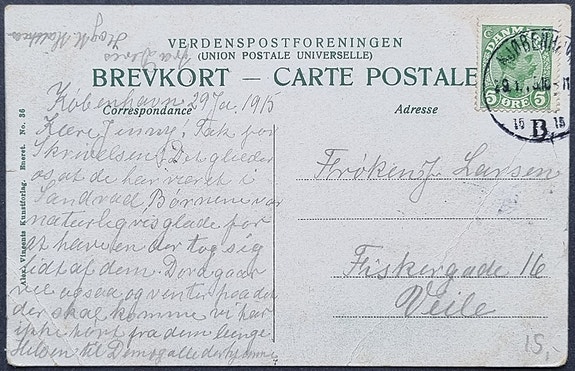 VERDENSPOSTFORENINGEN
(UNION POSTALE UNIVERSELLE)
BREVKORT — CARTE POSTALE
Correspondance
Adresse
København 29 Ju. 1915
Kære Jenny, Tak for
Skrivelsen. Det glæder
os at de har været i
Sandvad Börnene var
naturligvis glade for
at have en der tog sig
lidt af dem. Dora gaar
vel ogsaa og venter paa det
der skal komme vi har
ikke hört fra dem længe
Hilsen til Dem alle derhjemme
Fröken J. Larsen
Fiskergade 16
Veile
Alex. Vincents Kunstforlag. Eneret. No. 36
fra
DANMARK
5 ØRE 5
KJØBENHAVN
15 15
B
15,-